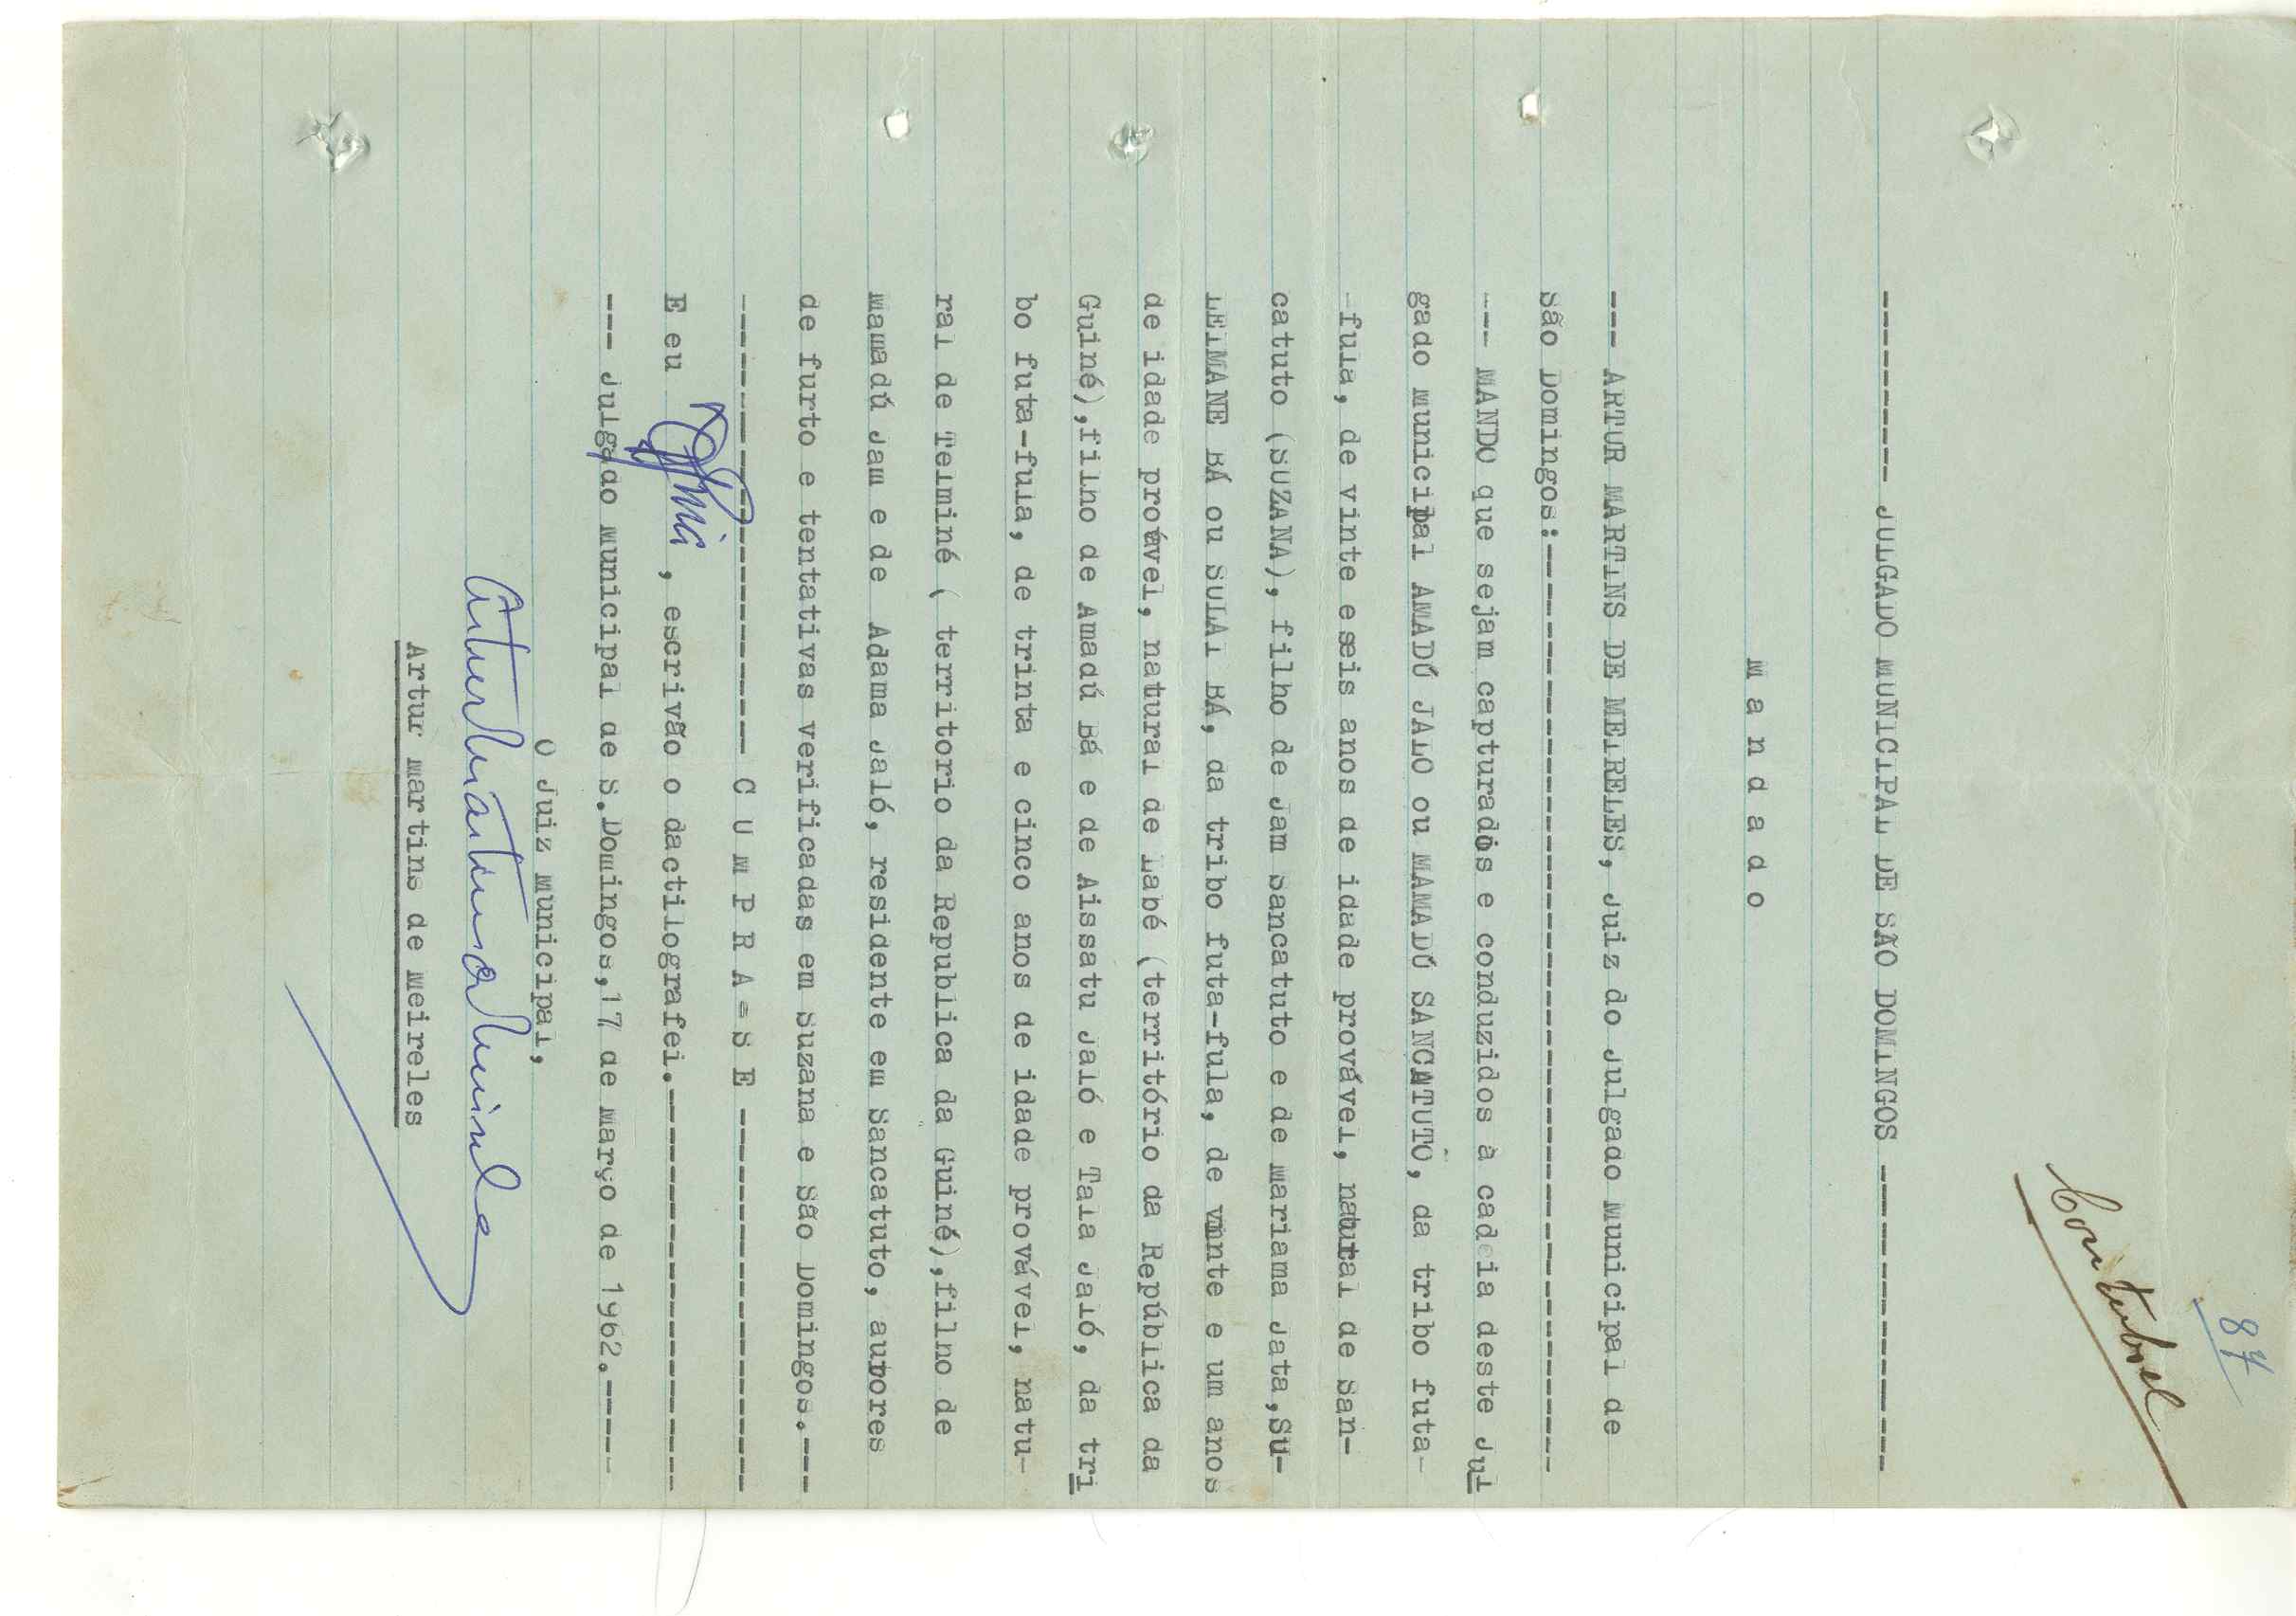 87
Contuboel
------------ JULGADO MUNICIPAL DE SÃO DOMINGOS --------------------
M a n d a d o
--- ARTUR MARTINS DE MEIRELES, Juiz do Julgado Municipal de
São Domingos:-----------------------------------------------
--- MANDO que sejam capturados e conduzidos à cadeia deste Jul
gado Municipal AMADÚ JALO ou MAMADÚ SANCATUTO, da tribo futa-
-fula, de vinte e seis anos de idade provável, natural de San-
catuto (SUZANA), filho de Jam Sancatuto e de Mariama Jata, SU-
LEIMANE BÁ ou SULAI BÁ, da tribo futa-fula, de vinte e um anos
de idade provável, natural de Labé (território da República da
Guiné), filho de Amadú Bá e de Aissatu Jaló e Tala Jaló, da tri
bo futa-fula, de trinta e cinco anos de idade provável, natu-
ral de Telminé ( territorio da Republica da Guiné), filho de
Mamadú Jam e de Adama Jaló, residente em Sancatuto, autores
de furto e tentativas verificadas em Suzana e São Domingos.---
--------------------------- C U M P R A = S E ----------------------
E eu , escrivão o dactilografei.-----------------------
--- Julgado Municipal de S.Domingos,17 de Março de 1962.-----
O Juiz Municipal,
Artur Martins de Meireles
Artur Martins de Meireles